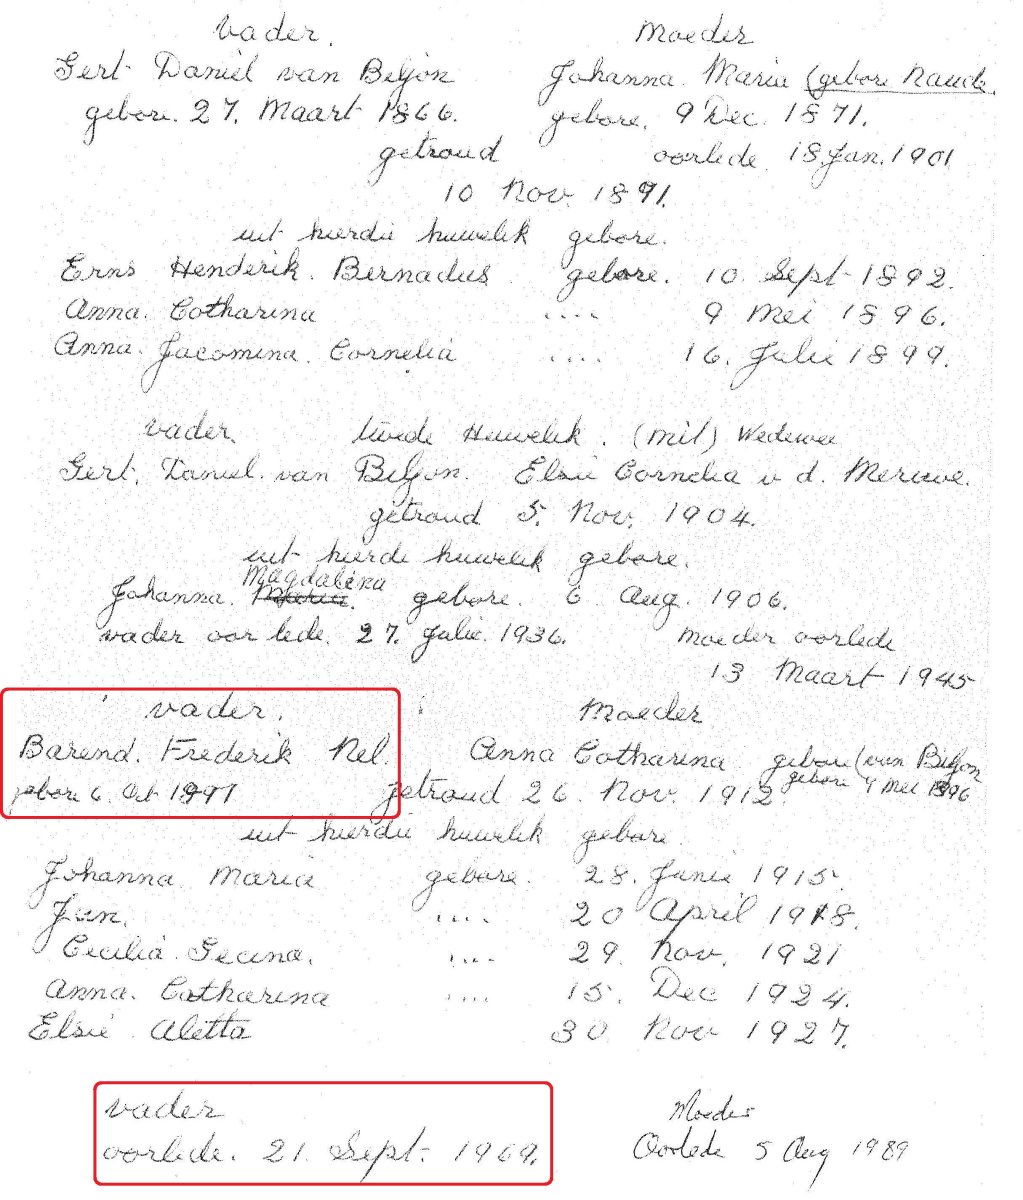 vader. Moeder
Gert Daniel van Biljon Johanna Maria (gebore Naude.
gebore. 27. Maart 1866. gebore. 9 Dec. 1871.
getroud oorlede 18 Jan. 1901
10 Nov. 1891.
uit hierdie huwelik gebore.
Erns Henderik. Bernadus gebore. 10. Sept 1892.
Anna. Catharina .... 9 Mei 1896.
Anna. Jacomina. Cornelia .... 16. Julie 1899.
vader. twede Huwelik. (mit) Wedewee
Gert. Daniel. van Biljon. Elsie Cornelia v d. Merwe.
getroud 5. Nov. 1904.
uit hierde huwelik gebore.
Magdalena
Johanna. Maria. gebore. 6 Aug. 1906.
vader oorlede. 27. Julie. 1936. Moeder oorlede
13 Maart 1945
vader. Moeder
Barend. Frederik Nel. Anna Catharina gebore (van Biljon
gebore 9 Mei 1896
gebore 6. Oct getroud 26. Nov. 1912
uit hierdie huwelik gebore
Johanna Maria gebore. 28. Junie 1915.
Jan. .... 20 April 1918.
Cecilia Gecina. .... 29 Nov. 1921
Anna. Catharina .... 15. Dec 1924.
Elsie Aletta 30 Nov 1927.
vader Moeder
oorlede. 21. Sept. 1969. Oorlede 5 Aug 1989